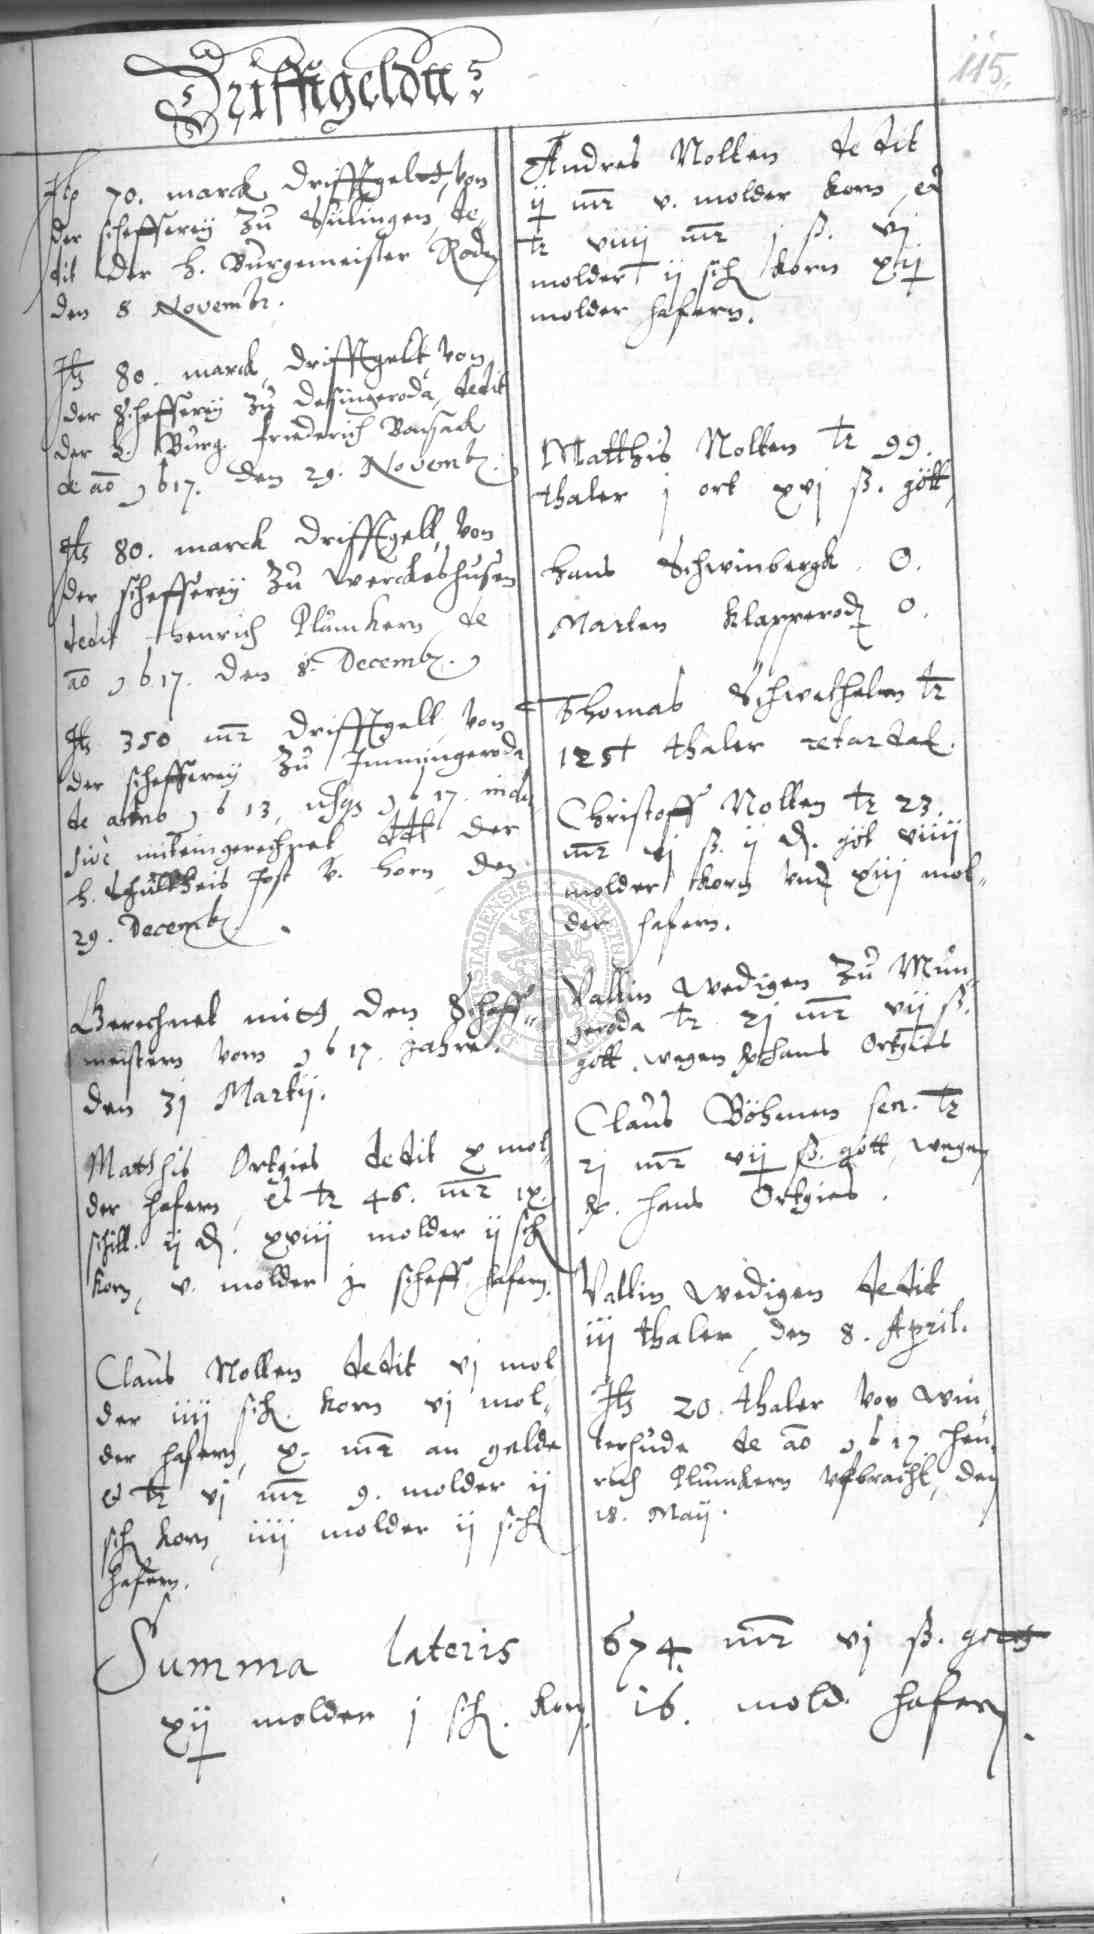 Drifftgeldtt
115.
Ito 70. marck Drifftgeldt, von
der schefferey Zu Sulingen, de„
dit der h. Burgemeister Rode
den 8 Novembr.
Itz 80. marck Drifftgelt, von
der Schefferey Zu Desingeroda, dedit
der h. Burg. Friederich Bonsack
de ao 1617. den 29. Novemb.
Itz 80. marck Drifftgelt, von
der schefferey Zu Werckeshusen
dedit Henrich Plumkern, de
ao 1617. den 8. Decemb.
Itz 350 mr Drifftgelt, von
der schefferey Zu Immingeroda
de anno 1613, usqz 1617. inclu
sive miteingerechnet ddt der
h. Schultheis Jost v. Horn, den
29. Decemb.
Gerechnet mitt den Scheff„
meistern vom 1617. Jahre.
den 31 Martij.
Matthis Ortgies dedit x mol„
der hafern, et tr 46. mr ix.
schill. ij d. xviij molder ij sch
korn, v. molder j scheff hafern.
Claus Nolten dedit vj mol„
der iiij sch. korn vj mol„
der hafern, x. mr an gelde
et tr vj mr 9. molder ij
sch korn, iiij molder ij sch
hafern.
Andres Nolten dedit
ij mr v. molder korn, et
tr viiij mr j ß. vj
molder ij sch korn xij
molder hafern.
Matthis Nolten tr 99.
thaler j ort xvj ß. gött
Hans Schwinbergk 0.
Marten Klapperodt 0.
Thomas Schwethelm tr
125 thaler retardat.
Christoff Nolten tr 23.
mr vj ß. ij d. göt viiij
molder korn und xiij mol„
der hafern.
Valtin Wedigen Zu Mün„
geroda tr 21 mr vij ß.
gött. wegen Hans Ortgies
Claus Böhmen sen. tr
21 mr vij ß. gött. wegen
Hans Ortgies.
Valtin Wedigen dedit
iij thaler, den 8. April.
Itz 20. thaler von Win„
terhude de ao 1617 Hen„
rich Plumkern ufbracht, den
18. Maij.
Summa lateris 674 mr vj ß. gött
xij molder j sch. korn 16. mold. hafern.